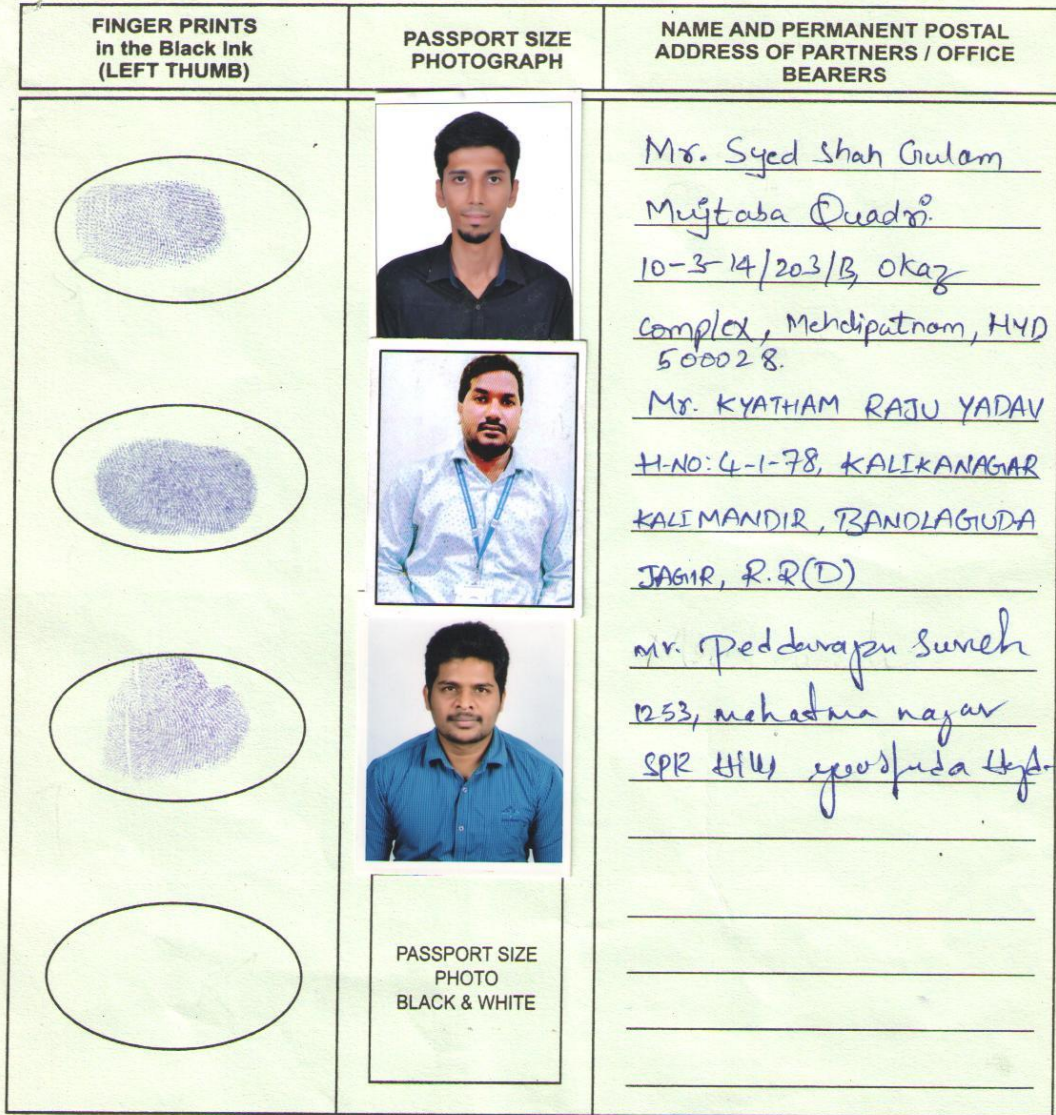 FINGER PRINTS
in the Black Ink
(LEFT THUMB)
PASSPORT SIZE
PHOTOGRAPH
NAME AND PERMANENT POSTAL
ADDRESS OF PARTNERS / OFFICE
BEARERS
Mr. Syed Shah Gulam
Mujtaba Quadri.
10-3-14/203/B, Okaz
complex, Mehdipatnam, HYD
500028.
Mr. KYATHAM RAJU YADAV
H-NO: 4-1-78, KALIKANAGAR
KALIMANDIR, BANDLAGUDA
JAGIR, R.R(D)
Mr. Peddarapu Suresh
1253, mahatma nagar
SPR Hills Hyd-
PASSPORT SIZE
PHOTO
BLACK & WHITE